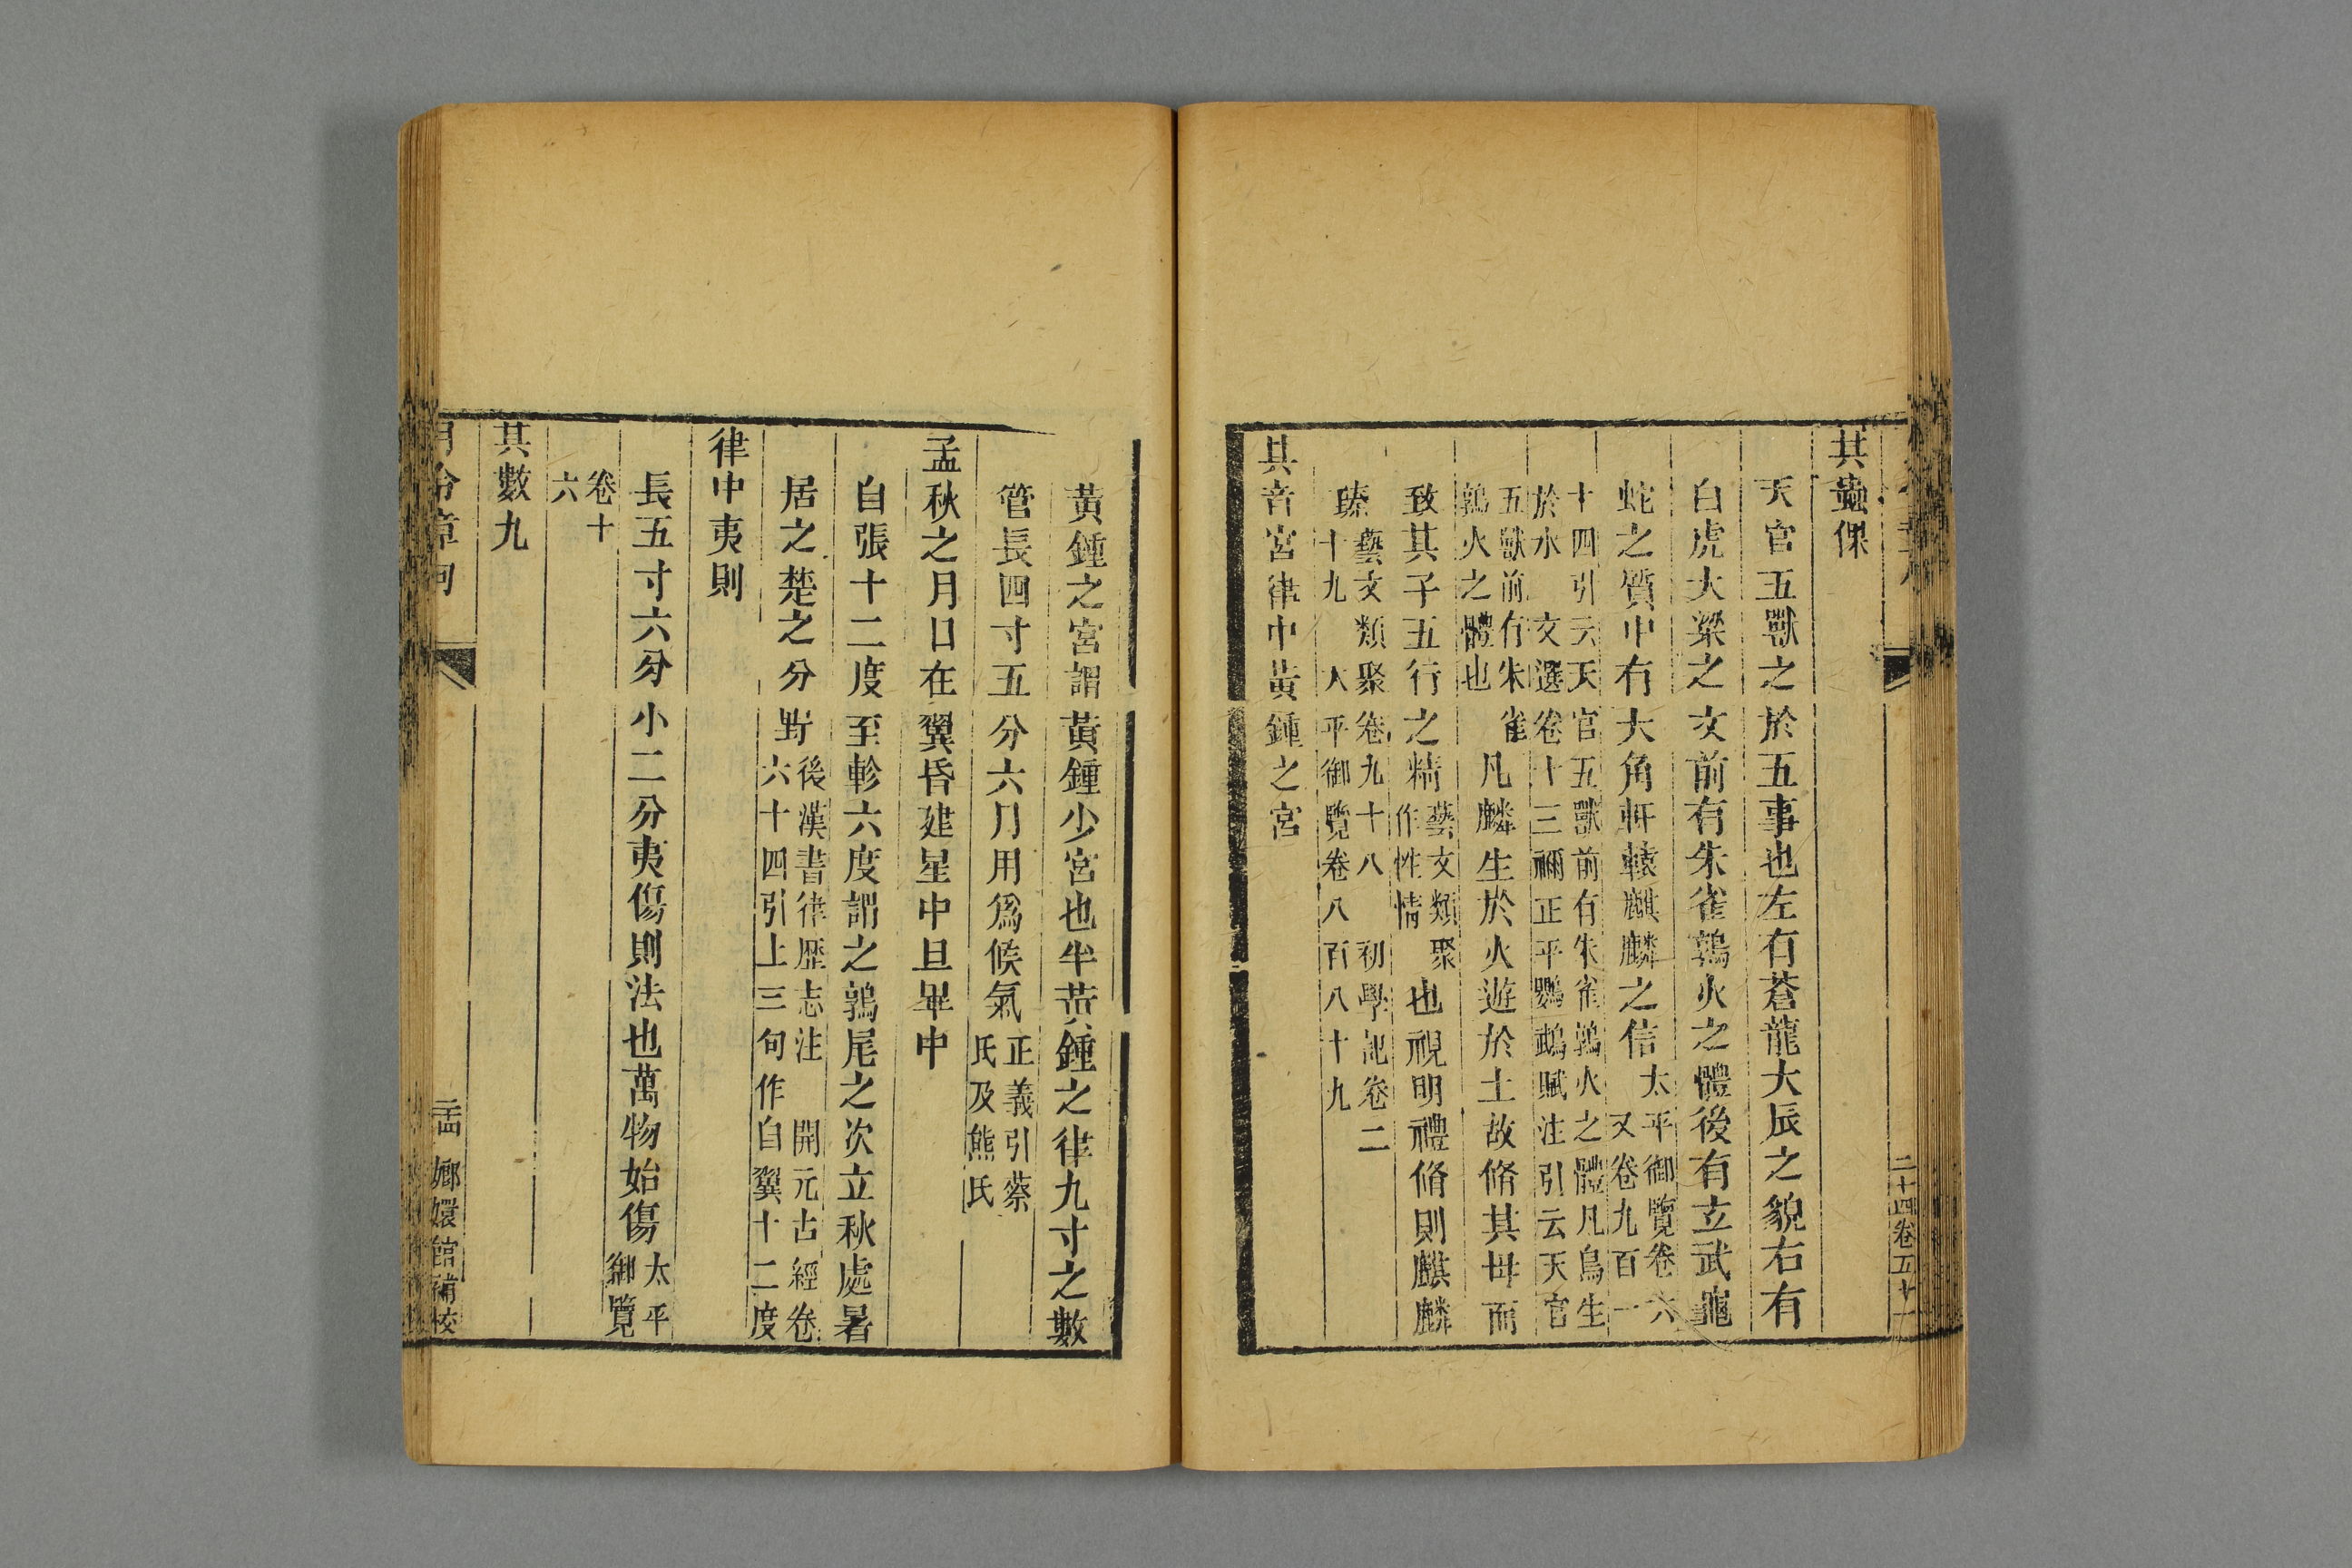 二十四卷五十一
其蟲倮
天官五獸之於五事也左有蒼龍大辰之貌右有
白虎大梁之文前有朱雀鶉火之體後有玄武龜
蛇之質中有大角軒轅麒麟之信太平御覽卷六又卷九百一
十四引云天官五獸前有朱雀鶉火之體凡鳥生於水 文選卷十三禰正平鸚鵡賦注引云天官
五獸前有朱雀鶉火之體也凡麟生於火遊於土故脩其母而
致其子五行之精藝文類聚作性情也視明禮脩則麒麟
臻藝文類聚卷九十八 初學記卷二十九 太平御覽卷八百八十九
其音宮律中黃鍾之宮
黃鍾之宮謂黃鍾少宮也半黃鍾之律九寸之數
管長四寸五分六月用爲候氣正義引蔡氏及熊氏
孟秋之月日在翼昏建星中旦畢中
自張十二度至軫六度謂之鶉尾之次立秋處暑
居之楚之分野後漢書律歷志注 開元占經卷六十四引上三句作自翼十二度
律中夷則
長五寸六分小二分夷傷則法也萬物始傷太平御覽
卷十六
其數九
月令章句
嫏嬛館補校